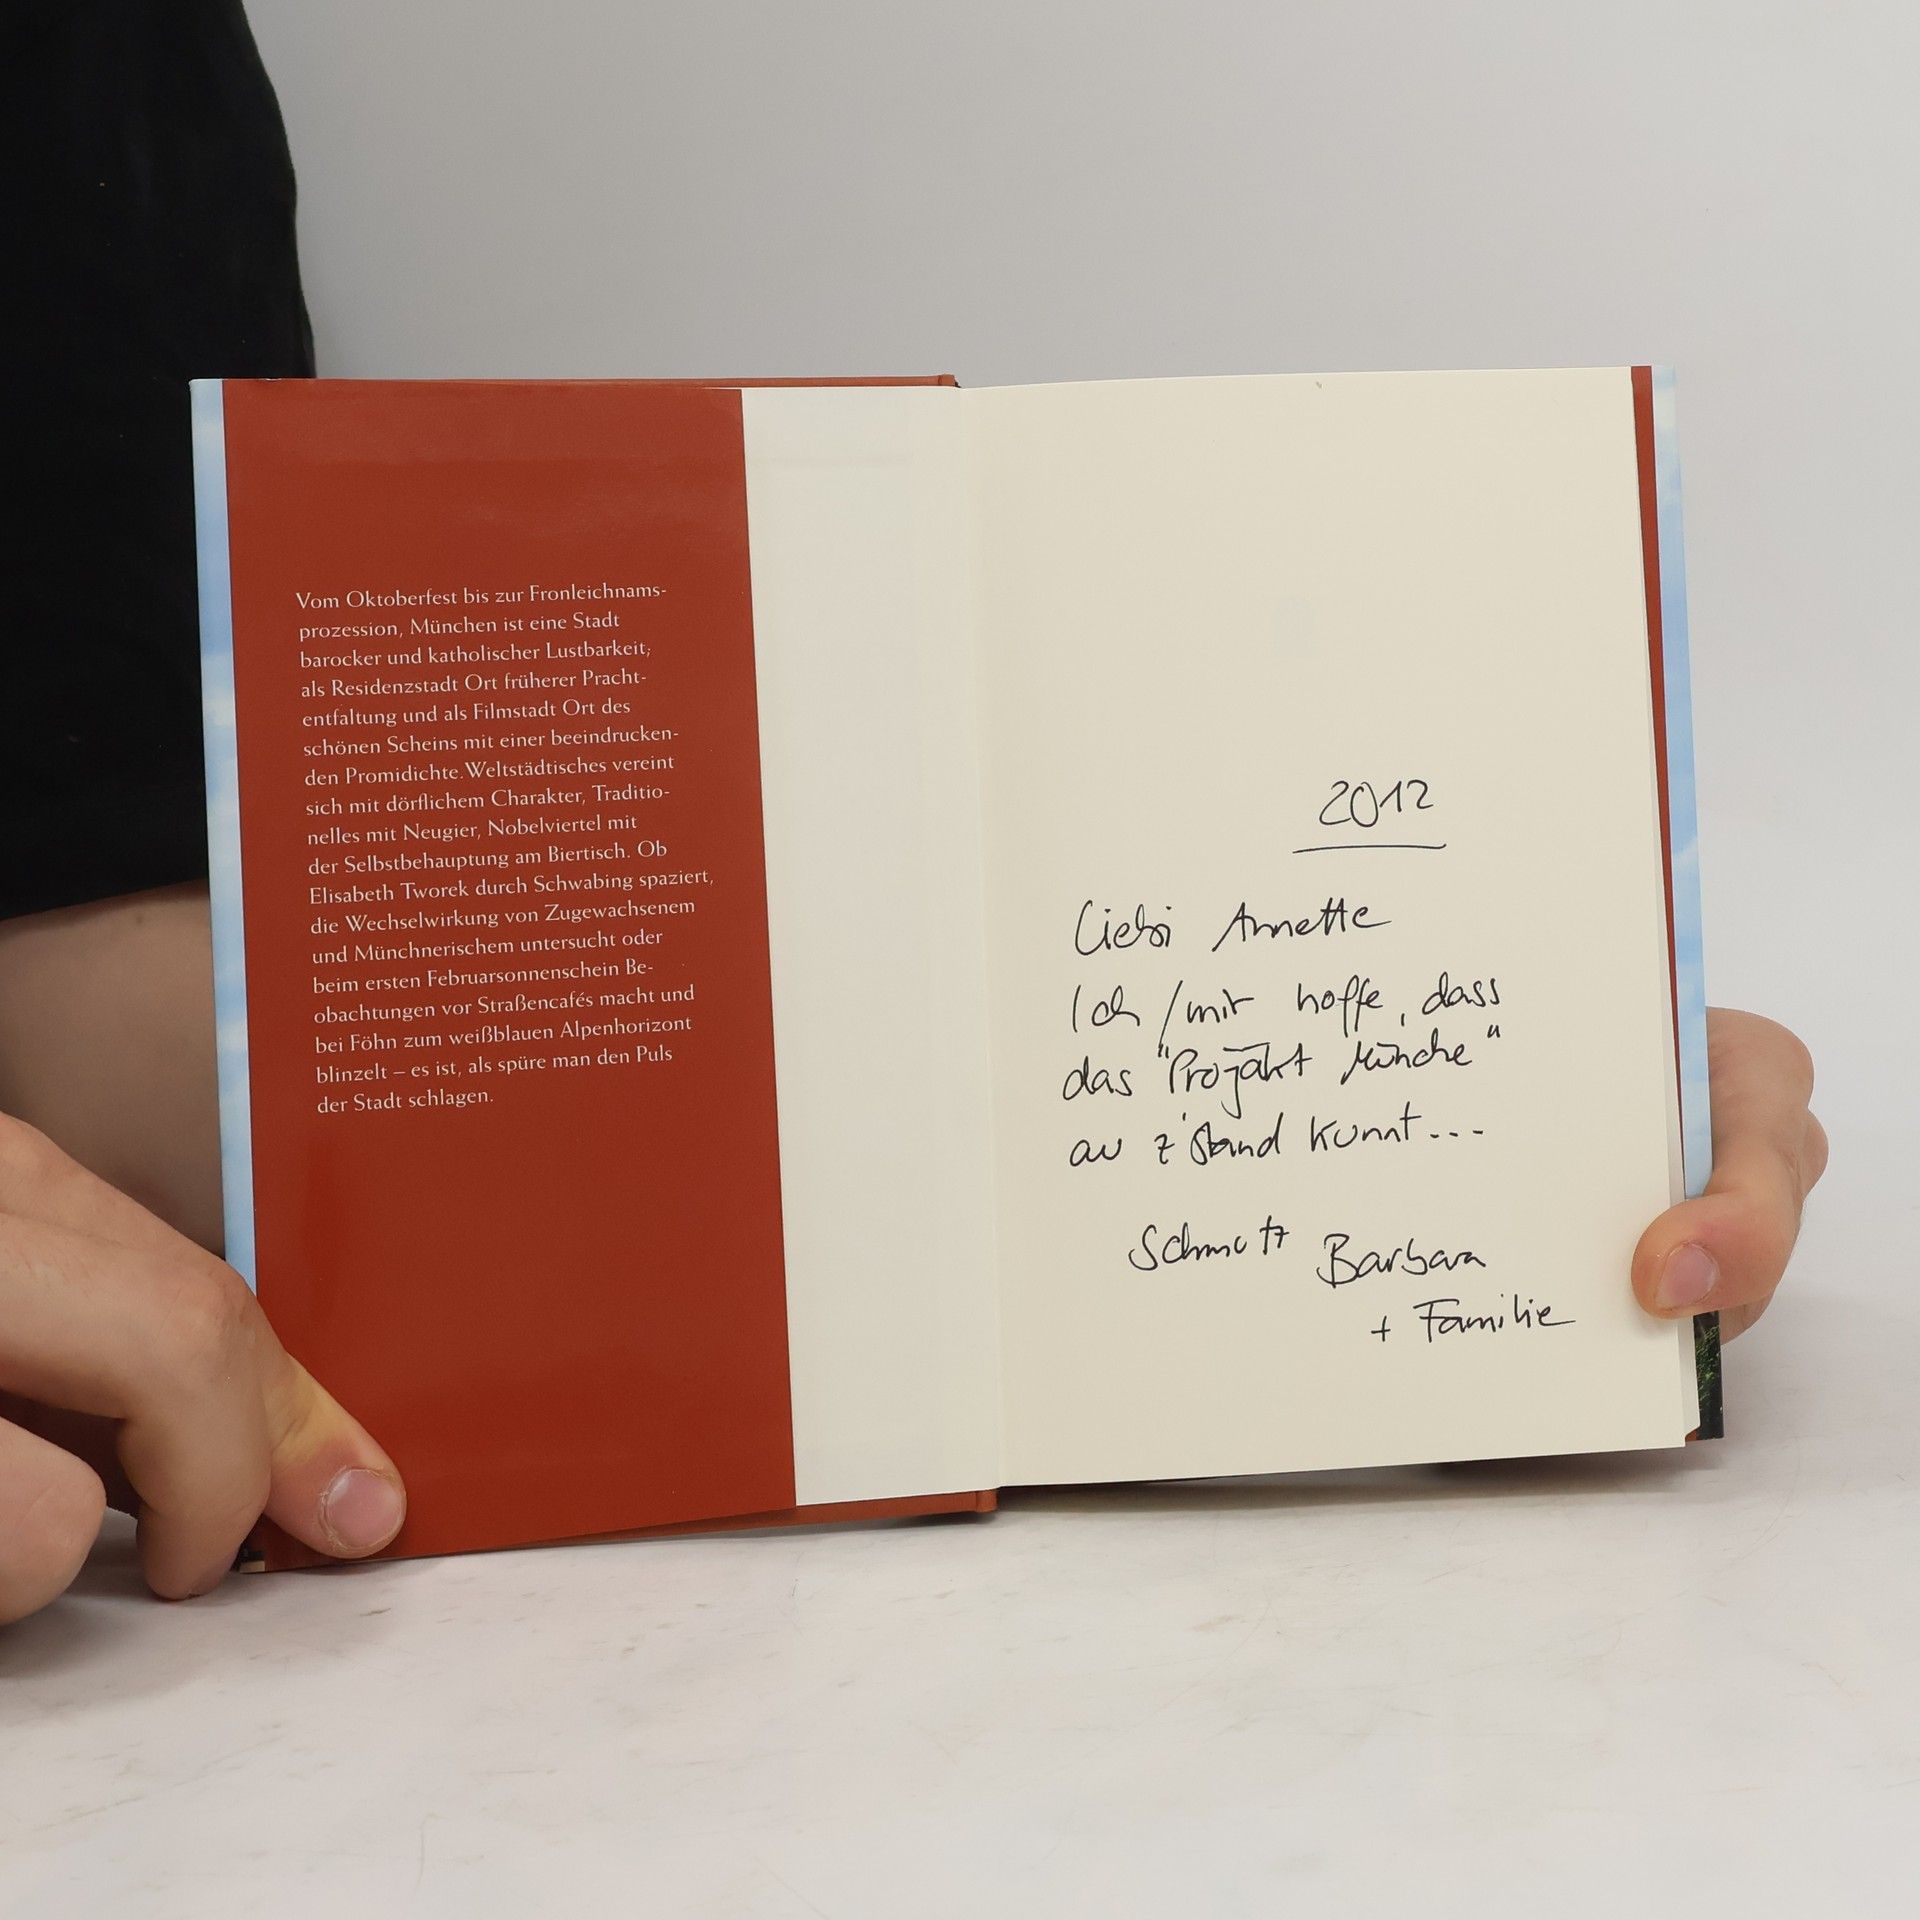 Vom Oktoberfest bis zur Fronleichnams-
prozession, München ist eine Stadt
barocker und katholischer Lustbarkeit;
als Residenzstadt Ort früherer Pracht-
entfaltung und als Filmstadt Ort des
schönen Scheins mit einer beeindrucken-
den Promidichte. Weltstädtisches vereint
sich mit dörflichem Charakter, Traditio-
nelles mit Neugier, Nobelviertel mit
der Selbstbehauptung am Biertisch. Ob
Elisabeth Tworek durch Schwabing spaziert,
die Wechselwirkung von Zugewachsenem
und Münchnerischem untersucht oder
beim ersten Februarsonnenschein Be-
obachtungen vor Straßencafés macht und
bei Föhn zum weißblauen Alpenhorizont
blinzelt – es ist, als spüre man den Puls
der Stadt schlagen.
2012
Liebi Annette
Ich / mir hoffe, dass
das "Projäkt Münche"
au z'Stand kunnt...
Schmutz Barbara
+ Familie